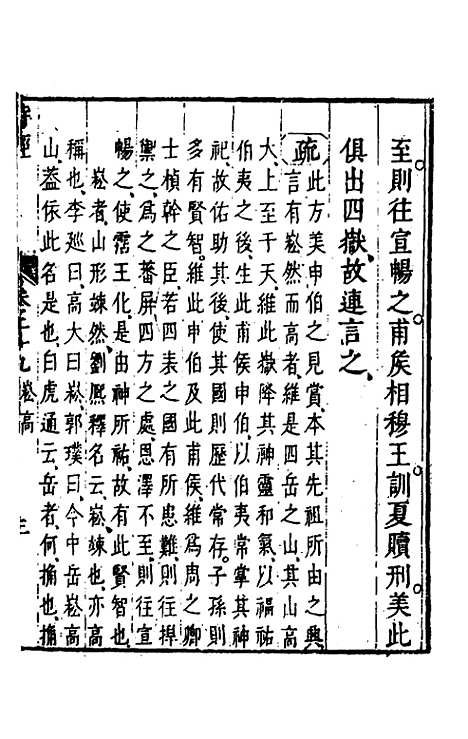 至則往宣暢之甫矦相穆王訓夏贖刑美此
俱出四嶽故連言之
疏此方美申伯之見賞本其先祖所由之興
言有崧然而高者維是四岳之山其山高
大上至于天維此嶽降其神靈和氣以福祐
伯夷之後生此甫侯申伯以伯夷常掌其神
祀故佑助其後使其國則歷代常存子孫則
多有賢智維此申伯及此甫侯維爲周之卿
士楨幹之臣若四表之國有所患難則往捍
禦之爲之蕃屏四方之處恩澤不至則往宣
暢之使霑王化是由神所祐故有此賢智也
崧者山形竦然劉熙釋名云崧竦也亦高
稱也李廵曰高大曰崧郭璞曰今中岳崧高
山葢依此名是也白虎通云岳者何捔也捔
詩經 卷之十九 崧高 三